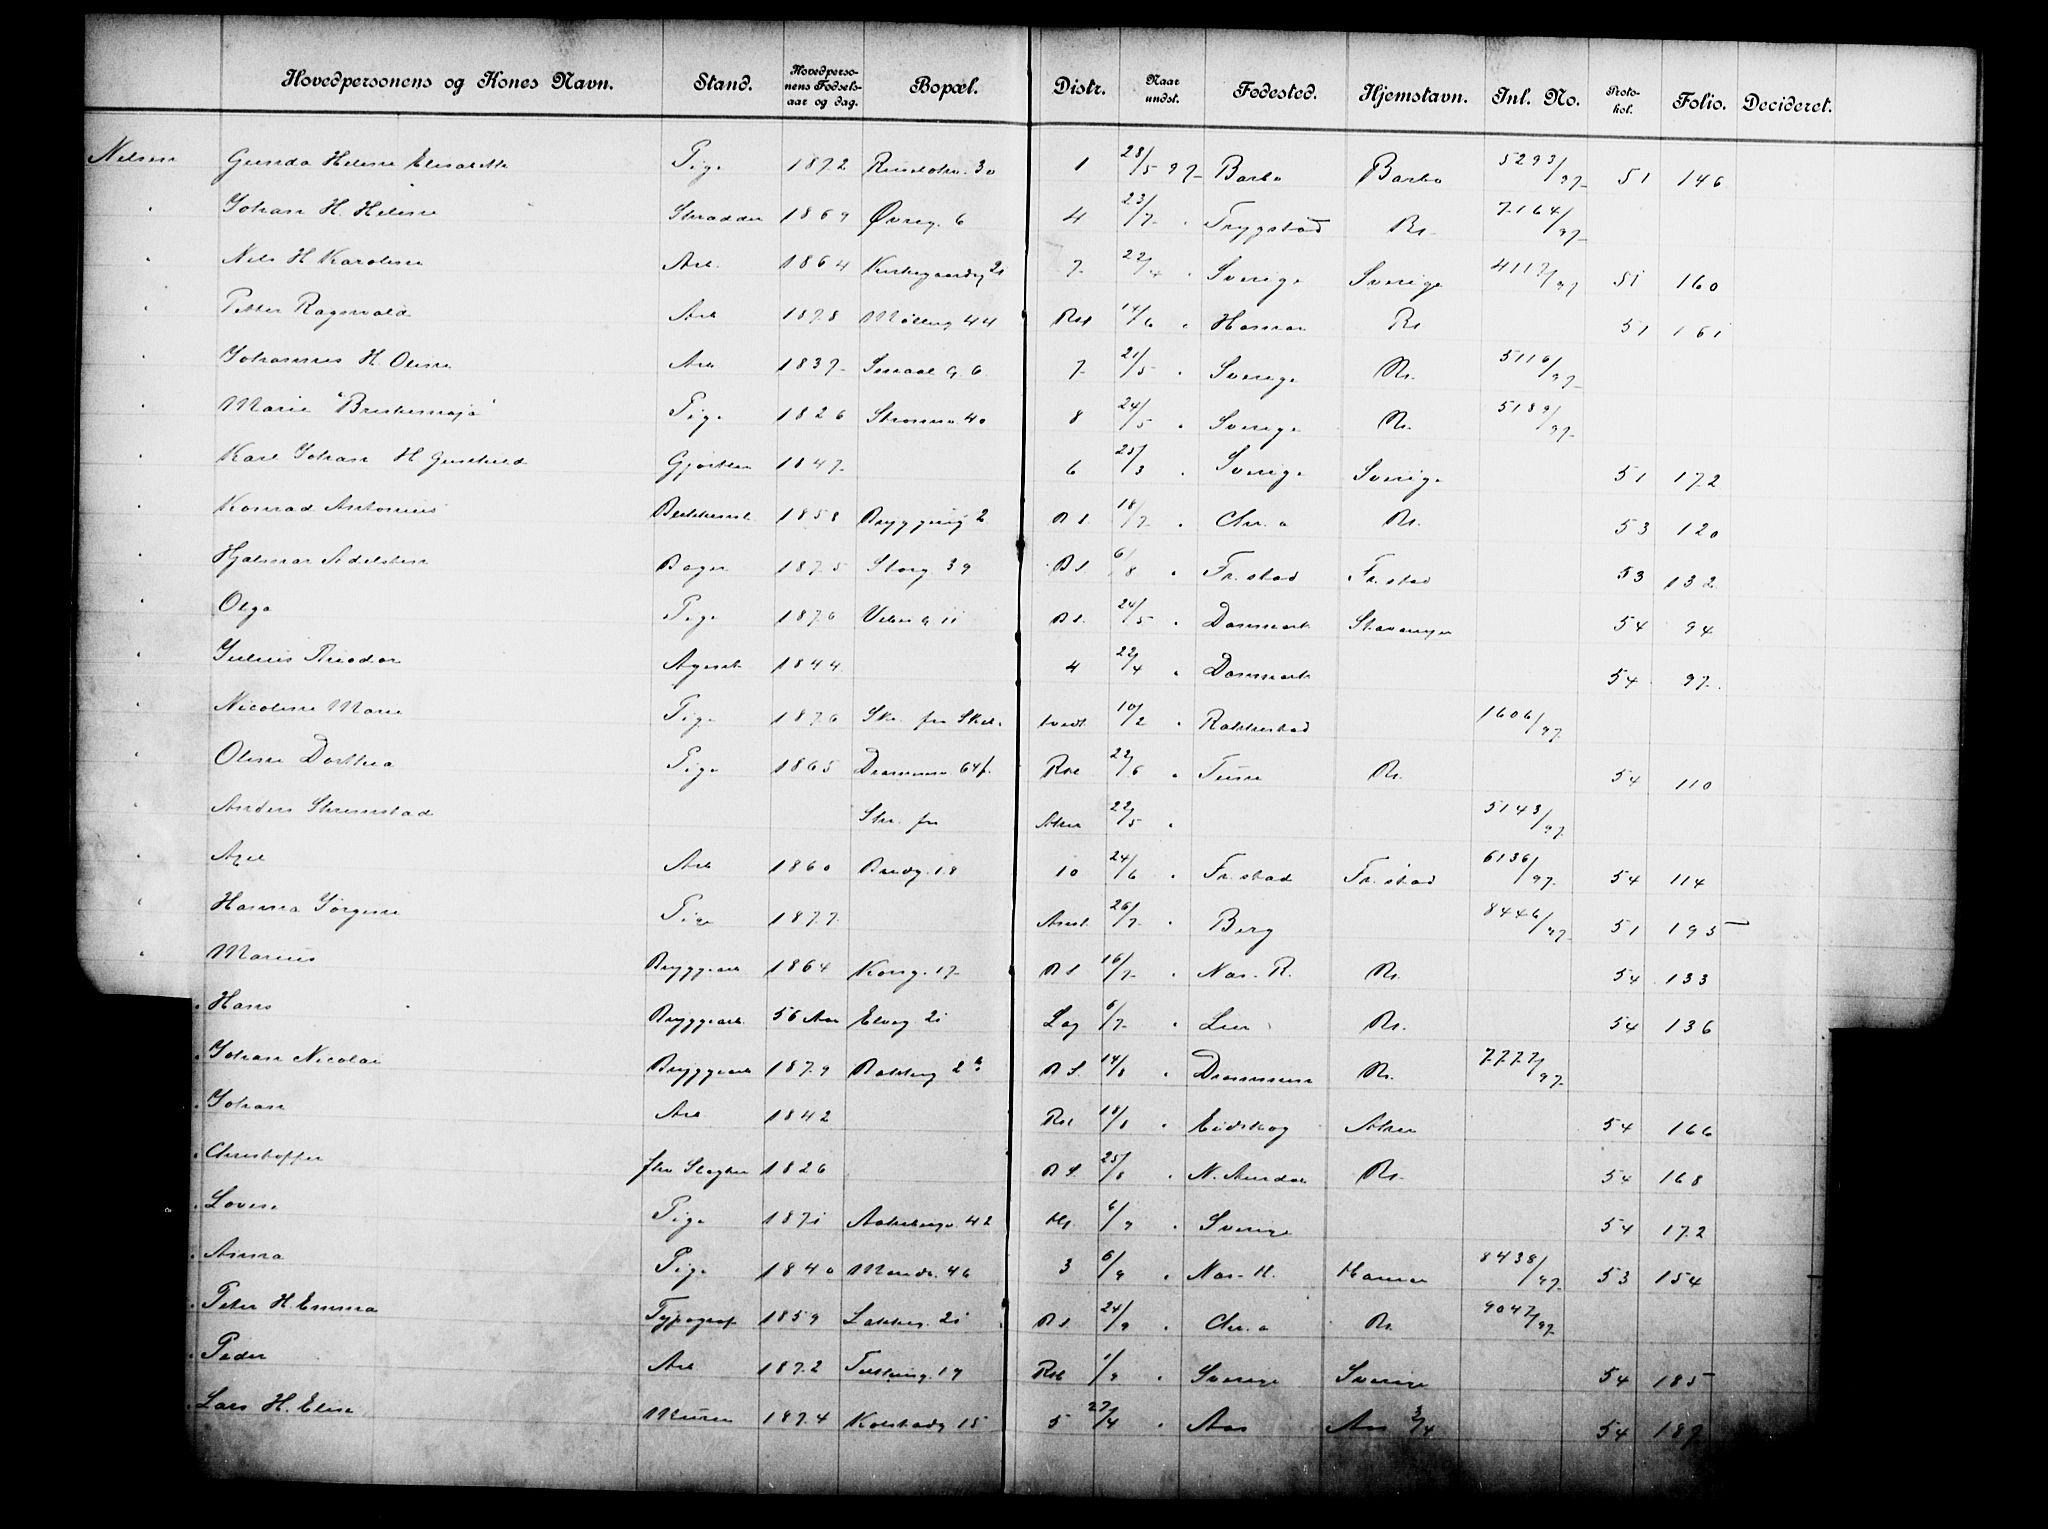 Hovedpersonens og Kones Navn. Stand. Hovedpersonens Fødselsaar og dag. Bopæl. Distr. Naar undst. Fødested. Hjemstavn. Inl. No. Protokol. Folio. Decideret.
Nilsen Gunda Helene Elisabeth Pige 1872 30 1 28/5 97 Barbo Barbo 5293/97 51 146
" Johan H. Helene Skrædder 1869 Øvreg. 6 4 23/7 " Trygstad Kr. 7164/97
" Nils H Karoline Arb. 1864 Kirkegaardsg 21 7 22/4 " Sverige Sverige 4117/97 51 160
" Petter Ragnvald Arb 1878 Møllerg 44 Rst 14/6 " Hamar Kr 51 161
" Johannes H. Oline Arb 1837 Smaal. g. 6 7 21/5 " Sverige Kr. 5116/97
" Marie "Briskemaja" Pige 1826 Strømsv. 40 8 24/5 " Sverige Kr. 5189/97
" Karl Johan H Gunhild Gjørtler 1847 6 25/3 " Sverige Sverige 51 172
" Konrad Antonius 1858 2 R S. 18/7 " Chr. a Kr. 53 120
" Hjalmar Adelsten Bager 1875 Storg 39 R S. 6/8 " Fr. stad Fr. stad 53 132
" Olga Pige 1876 11 R S. 24/5 " Danmark Stavanger 54 94
" Julius Theodor Agent 1844 4 22/4 " Danmark 54 97
" Nicoline Marie Pige 1876 Skr. fra tvedt 10/2 " Rakkestad 1606/97
" Oline Dorthea Pige 1865 Drammensv. 64 f. Rst 22/6 " Tune Kr. 54 110
" Anders Strømstad Skr. fra Aker 22/5 " 5143/97
" Axel Arb 1860 Bredg. 18 10 24/6 " Fr. stad Fr. stad 6136/97 54 114
" Hanna Jørgine Pige 1877 26/7 " Berg 8446/97 51 195
" Marius Bryggearb 1864 Kong. 17 R S 16/7 " Næs. R. Kr. 54 133
" Hans Bryggearb. 56 Aar Elveg. 21 Lag 6/7 " Lier Kr. 54 136
" Johan Nicolai Bryggearb 1879 Bakkeg 2 R S. 14/8 " Drammen Kr. 7777/97
" Johan Arb 1842 Rst 18/8 " Eidskog Aker 54 166
" Christoffer fhv Slagter 1826 R S. 25/8 " N. Aurdal Kr. 54 168
" Lovise Pige 1871 Akersbergv. 42 6/9 " Sverige 54 172
" Anna Pige 1840 46 3 6/9 " Næs. H. Hamar 8438/97 53 154
" Peter H. Emma Typograf 1859 Lakkeg. 21 R S. 24/9 " Chr. a Kr. 9047/97
" Peder Arb 1872 19 Rst 1/9 " Sverige Sverige 54 185
" Lars H. Elise Murer 1874 Kolstadg 15 5 27/4 " Aas Aas 3/4 54 187